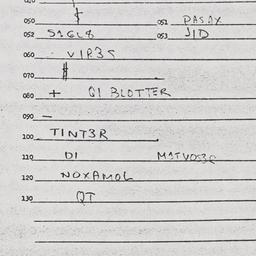 050 $ 051 PASAX
052 S1GL8 053 JID
060 VIP3S
070 $
080 + QI BLOTTER
090 —
100 TINT3R
110 DI
120 NOXAMOL
130 QT